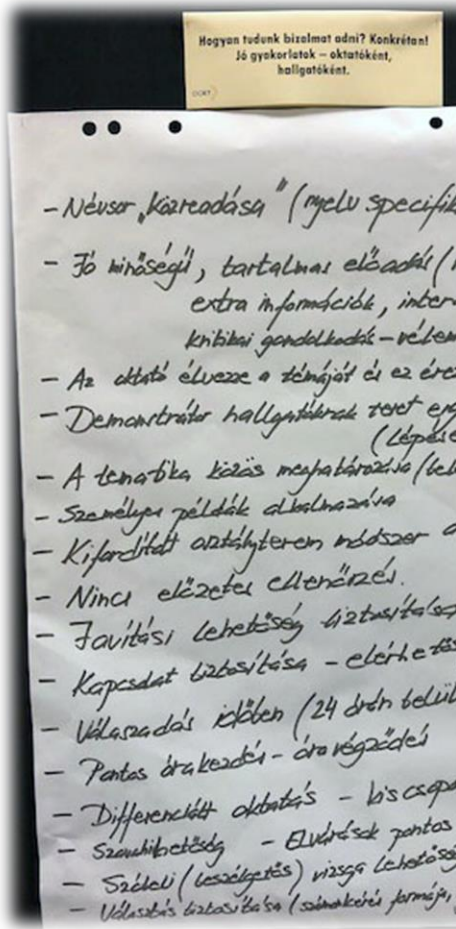 Hogyan tudunk bizalmat adni? Konkrétan!
Jó gyakorlatok – oktatóként,
hallgatóként.
- Névsor „közreadása” (nyelv specifik
- Jó minőségű, tartalmas előadás (
extra információk, inter
kritikai gondolkodás – vélem
- Az oktató élvezze a témáját és ez érez
- Demonstrátor hallgatóknak teret eng
(Lépése
- A tematika közös meghatározása (lehe
- Személyes példák alkalmazása
- Kifordított osztályterem módszer a
- Nincs előzetes ellenőrzés.
- Javítási lehetőség biztosítása
- Kapcsolat biztosítása – elérhetős
- Válaszadás időben (24 órán belül
- Pontos órakezdés - óravégződés
- Differenciált oktatás – kiscsopo
- Számonkérhetőség – Elvárások pontos
- Szóbeli (beszélgetős) vizsga lehetőség
- Választás biztosítása (számonkérés formája,